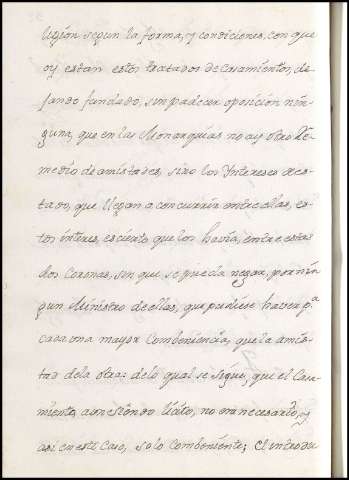 ligion segun la forma, y condiciones, con que
oy estan estos tratados de casamientos, de-
jando fundado, sin padecer oposicion nin-
guna, que en las Monarquias no ay otro Re-
medio de amistades, sino los Yntereses de es-
tado, que llegan a concurrir entre ellas, es-
tos interes, es cierto que los havia, entre estas
dos Coronas, sin que se pueda negar, por nin
gun Ministro de ellas, que pudiese haver pª
cada una mayor Combeniencia, que la amis-
tad dela otra: delo qual se sigue, que el Casa-
miento, aun siendo licito, no era necesario, y
asi en este Caso, solo Combeniente; El introdu